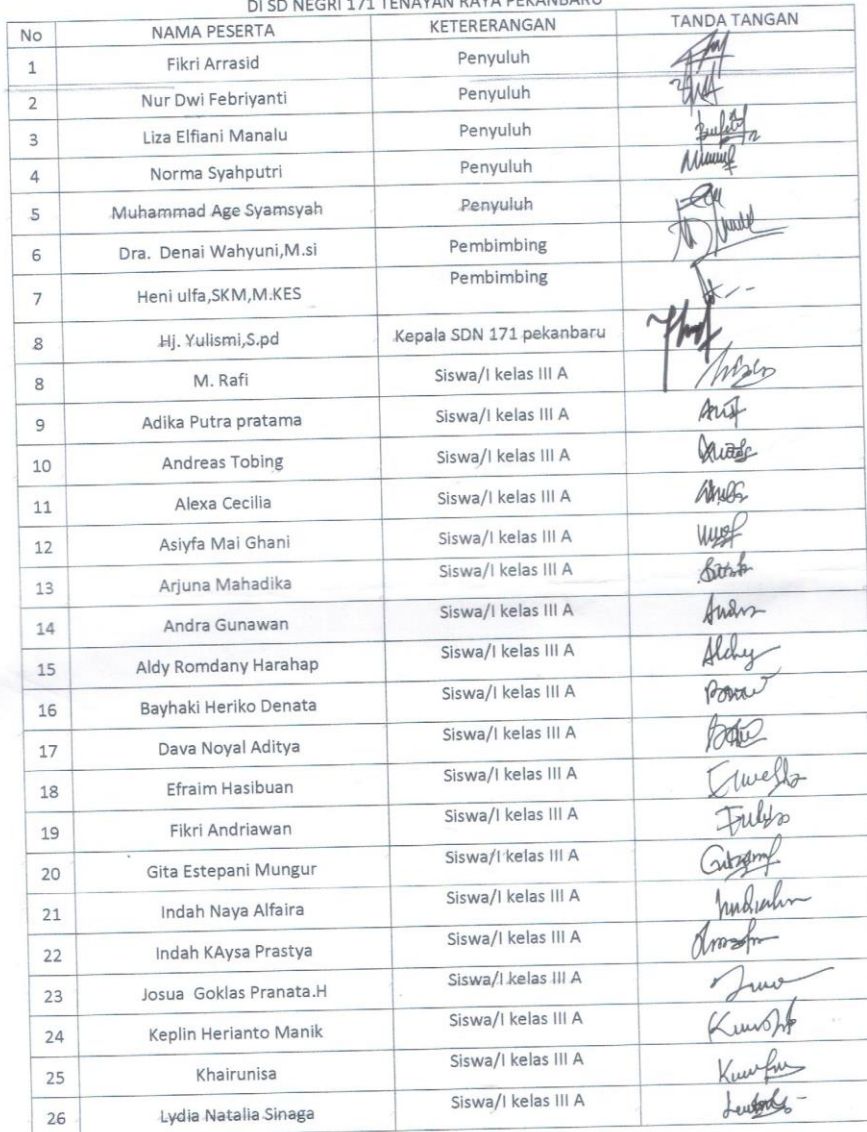 DI SD NEGRI 171 TENAYAN RAYA PEKANBARU
No NAMA PESERTA KETERERANGAN TANDA TANGAN
1 Fikri Arrasid Penyuluh
2 Nur Dwi Febriyanti Penyuluh
3 Liza Elfiani Manalu Penyuluh
4 Norma Syahputri Penyuluh
5 Muhammad Age Syamsyah Penyuluh
6 Dra. Denai Wahyuni,M.si Pembimbing
7 Heni ulfa,SKM,M.KES Pembimbing
8 Hj. Yulismi,S.pd Kepala SDN 171 pekanbaru
8 M. Rafi Siswa/I kelas III A
9 Adika Putra pratama Siswa/I kelas III A
10 Andreas Tobing Siswa/I kelas III A
11 Alexa Cecilia Siswa/I kelas III A
12 Asiyfa Mai Ghani Siswa/I kelas III A
13 Arjuna Mahadika Siswa/I kelas III A
14 Andra Gunawan Siswa/I kelas III A
15 Aldy Romdany Harahap Siswa/I kelas III A
16 Bayhaki Heriko Denata Siswa/I kelas III A
17 Dava Noyal Aditya Siswa/I kelas III A
18 Efraim Hasibuan Siswa/I kelas III A
19 Fikri Andriawan Siswa/I kelas III A
20 Gita Estepani Mungur Siswa/I kelas III A
21 Indah Naya Alfaira Siswa/I kelas III A
22 Indah KAysa Prastya Siswa/I kelas III A
23 Josua Goklas Pranata.H Siswa/I kelas III A
24 Keplin Herianto Manik Siswa/I kelas III A
25 Khairunisa Siswa/I kelas III A
26 Lydia Natalia Sinaga Siswa/I kelas III A